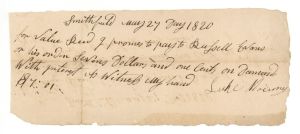 Smithfield May 27 Day 1820
for Value Recd I promes to pay to Russell Evans
or his order Seven Dollars and one Cent, on Demand
With interest As Witness My hand
$7=01